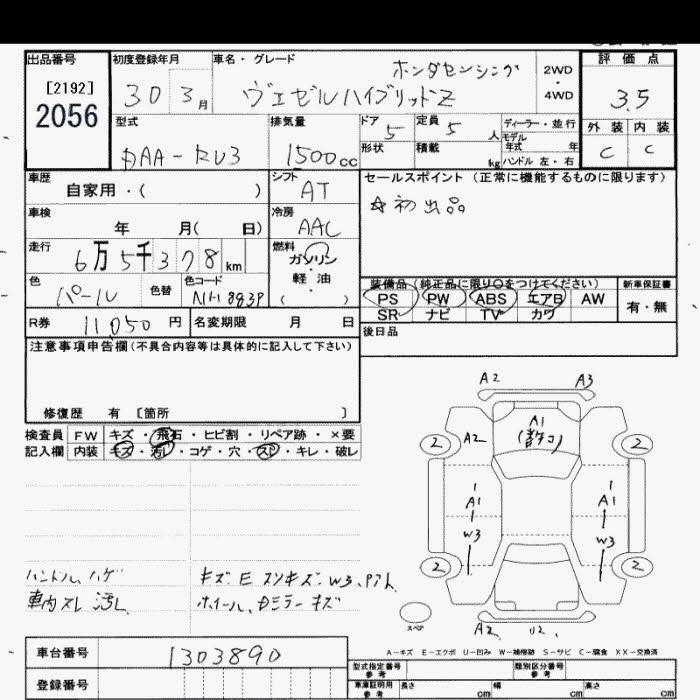 出品番号 初度登録年月 車名・グレード 評価点
[2192] ホンダセンシング 2WD
2056 30 3月 ヴェゼルハイブリッドZ ・ 4WD 3.5
型式 排気量 ドア 5 定員 5 人 ディーラー・並行 外装 内装
DAA-RU3 1500cc 形状 積載 kg モデル年式 年 C C
ハンドル 左・右
車歴 シフト セールスポイント(正常に機能するものに限ります)
自家用・( ) AT ☆初出品
車検 冷房
年 月( 日) AAC
走行 6万5千378km 燃料 ガソリン・軽油 ( )
装備品(純正品に限り○をつけてください) 新車保証書
色 パール 色替 色コード NH-1 883P
PS PW ABS エアB AW 有・無
SR ナビ TV カワ
R券 11,050円 名変期限 月 日 後日品
注意事項申告欄(不具合内容等は具体的に記入して下さい)
修復歴 有 [箇所 ]
検査員 FW キズ・飛石・ヒビ割・リペア跡・×要
記入欄 内装 キズ・汚レ・コゲ・穴・スレ・キレ・破レ
A2 A3
A1
2 A2 2
A1 A1
W3 W3
2 2
スペア A2 U2
ハンドルハゲ キズ E スリキズ W3、Pアト
車内スレ 汚レ ホイール、Dミラーキズ
A-キズ E-エクボ U-凹み W-補修跡 S-サビ C-腐食 XX-交換済
車台番号 1303890
型式指定番号 参考 類別区分番号 参考
登録番号 車庫証明用 参考 長さ cm 幅 cm 高さ cm